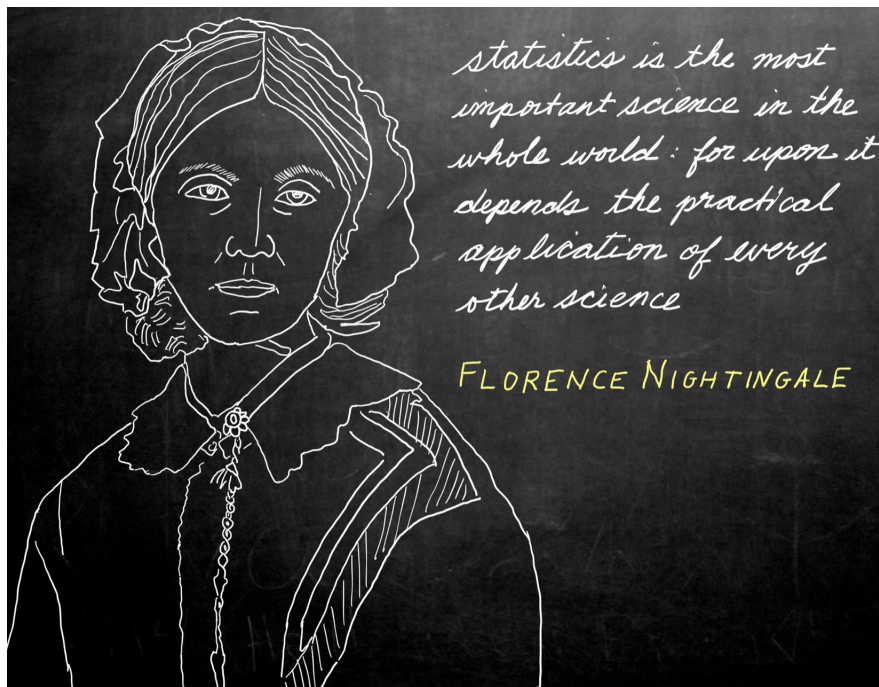 statistics is the most
important science in the
whole world: for upon it
depends the practical
application of every
other science
FLORENCE NIGHTINGALE